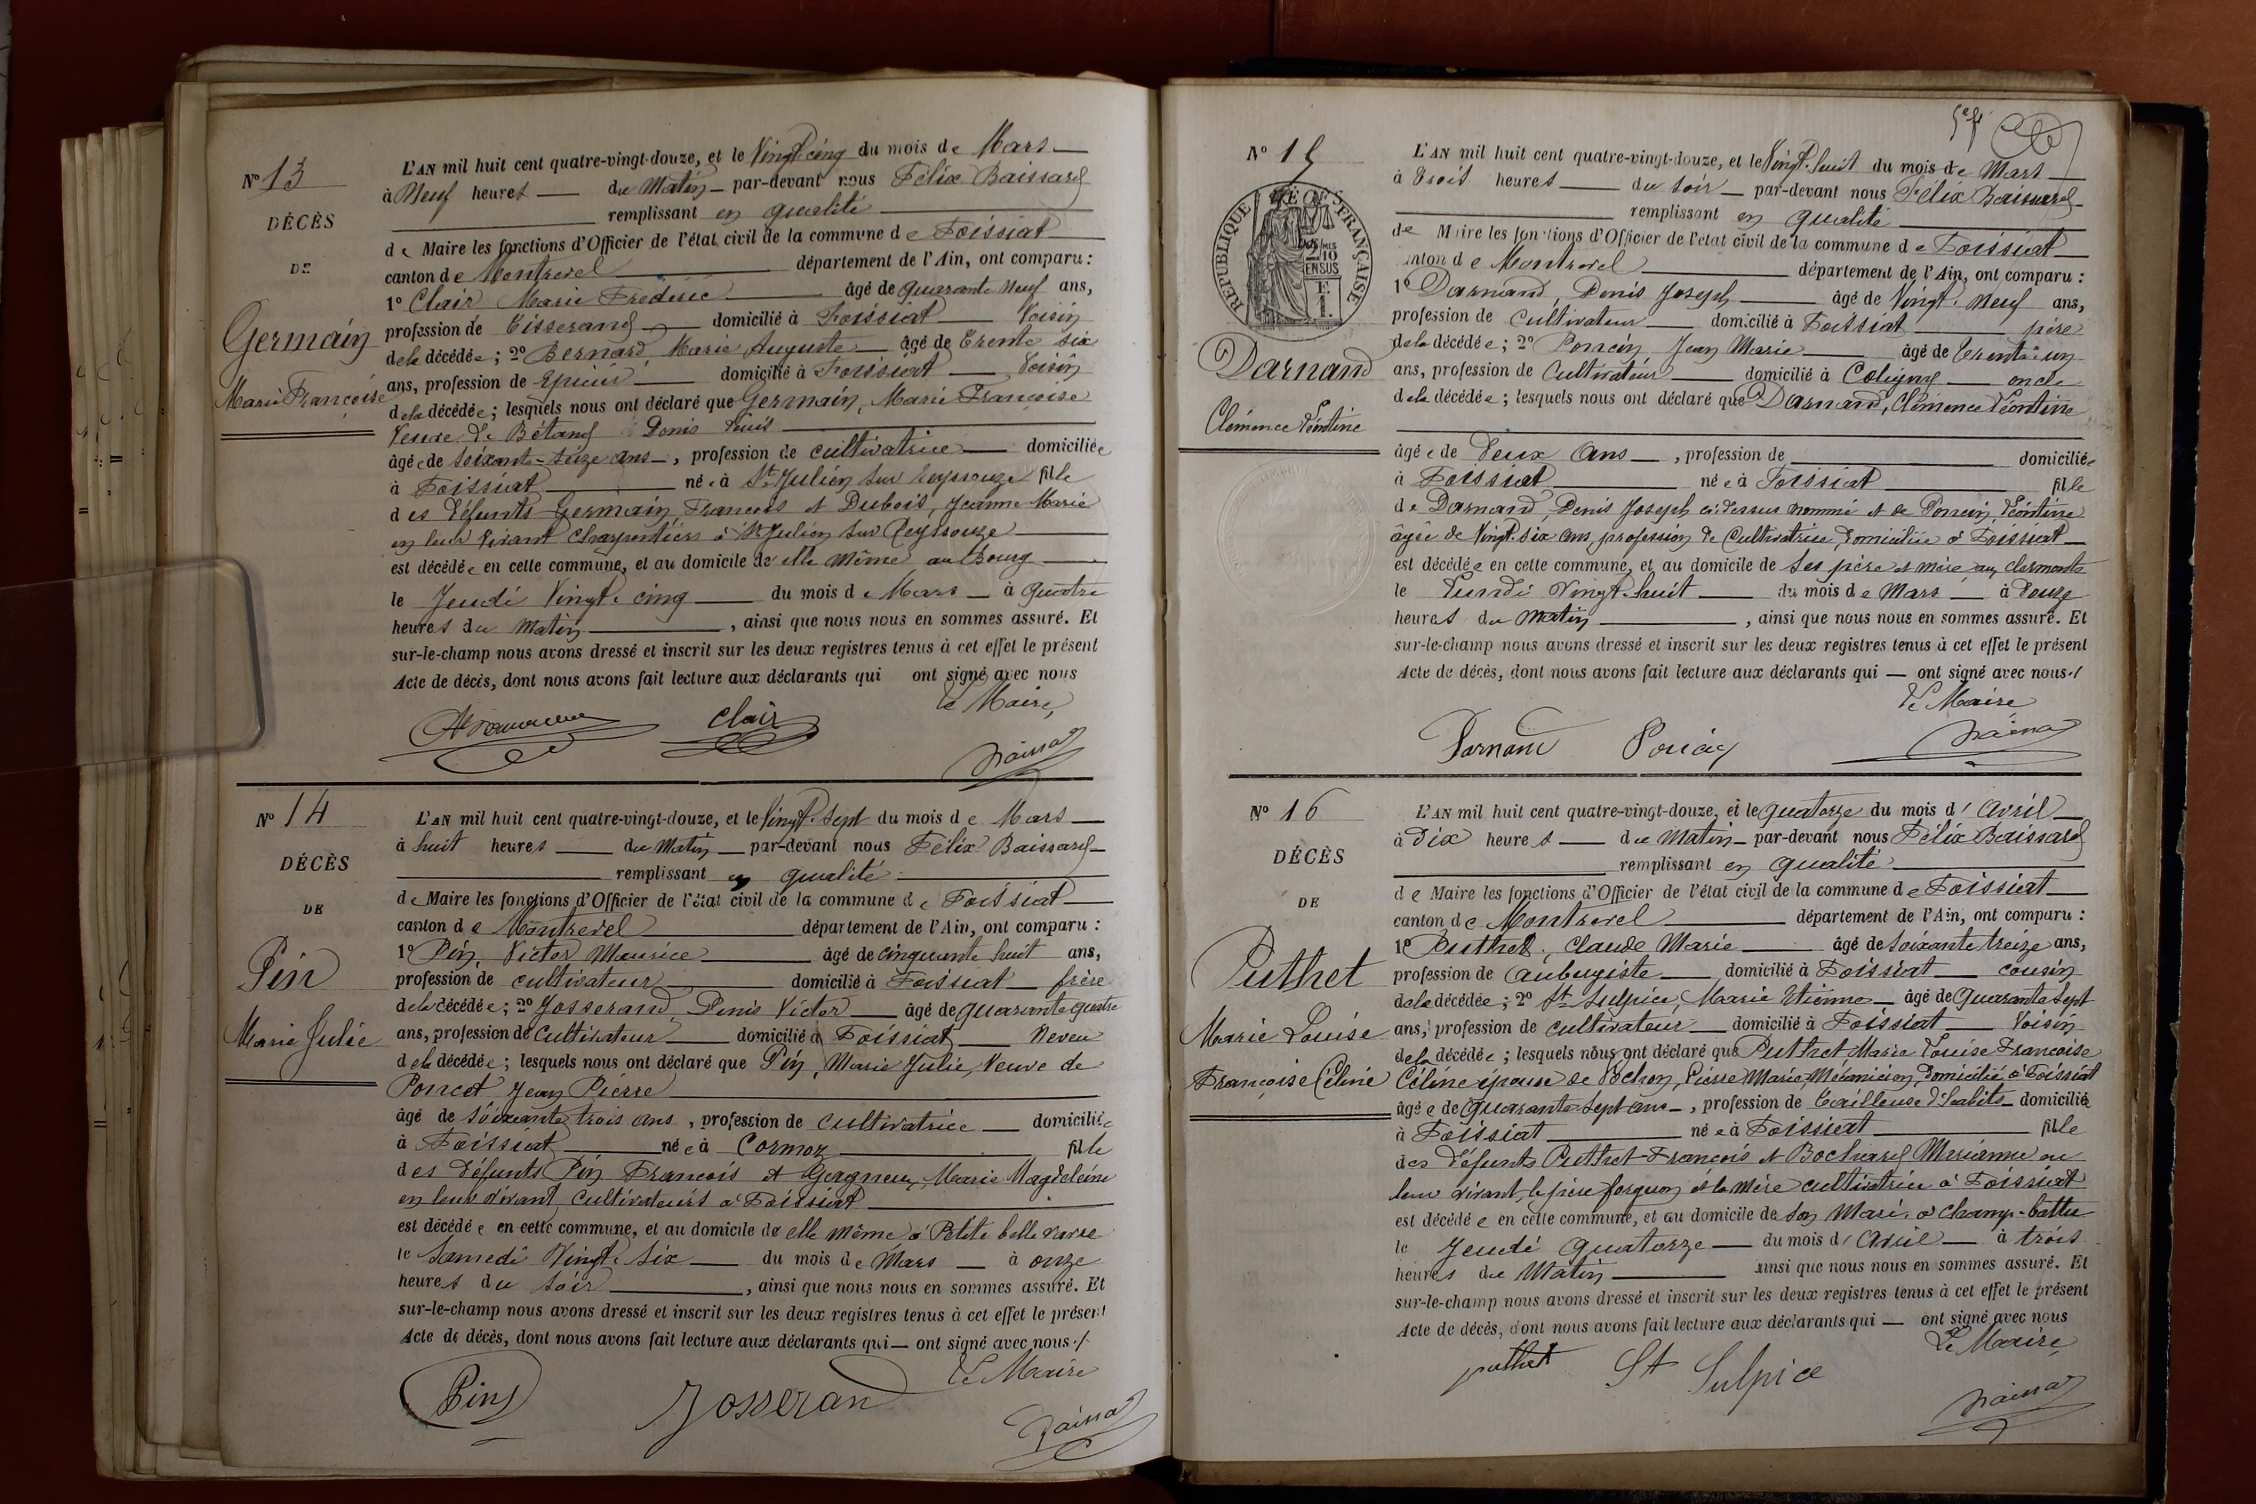 N° 13
DÉCÈS
DE
Germain
Marie Françoise
L'AN mil huit cent quatre-vingt-douze, et le Vingt cinq du mois de Mars
à Neuf heures du Matin par-devant nous Félix Baissard
remplissant en qualité
de Maire les fonctions d'Officier de l'état civil de la commune de Foissiat
canton de Montrevel département de l'Ain, ont comparu :
1° Clair Marie Frederic âgé de quarante Neuf ans,
profession de Tisserand domicilié à Foissiat Voisin
de la décédée ; 2° Bernard, Marie Auguste âgé de Trente six
ans, profession de Epicier domicilié à Foissiat Voisin
de la décédée ; lesquels nous ont déclaré que Germain, Marie Françoise
Veuve de Bétand Denis Louis
âgée de soixante-seize ans, profession de cultivatrice domiciliée
à Foissiat née à St Julien sur Reyssouze fille
des défunts Germain, François et Dubois, Jeanne Marie
en leur vivant Charpentiers à St Julien sur Reyssouze
est décédée en cette commune, et au domicile de elle même au Bourg
le Jeudi Vingt-cinq du mois de Mars à quatre
heures du Matin, ainsi que nous nous en sommes assuré. Et
sur-le-champ nous avons dressé et inscrit sur les deux registres tenus à cet effet le présent
Acte de décès, dont nous avons fait lecture aux déclarants qui ont signé avec nous
Le Maire,
Clair
N° 14
DÉCÈS
DE
Pin
Marie Julie
L'AN mil huit cent quatre-vingt-douze, et le Vingt-Sept du mois de Mars
à huit heures du Matin par-devant nous Félix Baissard
remplissant en qualité
de Maire les fonctions d'Officier de l'état civil de la commune de Foissiat
canton de Montrevel département de l'Ain, ont comparu :
1° Pin, Victor Maurice âgé de cinquante huit ans,
profession de cultivateur domicilié à Foissiat frère
de la décédée ; 2° Josserand, Denis Victor âgé de quarante quatre
ans, profession de Cultivateur domicilié à Foissiat Neveu
de la décédée ; lesquels nous ont déclaré que Pin, Marie Julie, Veuve de
Poncet, Jean Pierre
âgé de soixante trois ans, profession de cultivatrice domiciliée
à Foissiat née à Cormoz fille
des défunts Pin François et Gagneux, Marie Magdeleine
en leur vivant, cultivateurs à Foissiat
est décédée en cette commune, et au domicile de elle même à Petite belle varre
le Samedi Vingt-Six du mois de Mars à onze
heures du Soir, ainsi que nous nous en sommes assuré. Et
sur-le-champ nous avons dressé et inscrit sur les deux registres tenus à cet effet le présent
Acte de décès, dont nous avons fait lecture aux déclarants qui — ont signé avec nous ./.
Le Maire
Pin
Josseran
N° 15
RÉPUBLIQUE FRANÇAISE
Darnand
Clémence Léontine
L'AN mil huit cent quatre-vingt-douze, et le Vingt-huit du mois de Mars
à trois heures du soir par-devant nous Félix Baissard
remplissant en qualité
de Maire les fonctions d'Officier de l'état civil de la commune de Foissiat
canton de Montrevel département de l'Ain, ont comparu :
1° Darnand, Denis Joseph âgé de Vingt-Neuf ans,
profession de Cultivateur domicilié à Foissiat père
de la décédée ; 2° Poncin Jean Marie âgé de trente-un
ans, profession de Cultivateur domicilié à Coligny oncle
de la décédée ; lesquels nous ont déclaré que Darnand, Clémence Léontine
âgée de Deux Ans, profession de domiciliée
à Foissiat née à Foissiat fille
de Darnand, Denis Joseph ci-dessus nommé et de Poncin, Léontine
âgée de Vingt-six ans, profession de Cultivatrice, domiciliée à Foissiat
est décédée en cette commune, et au domicile de Ses père et mère aux clermonts
le Lundi Vingt-huit du mois de Mars à Douze
heures du Matin, ainsi que nous nous en sommes assuré. Et
sur-le-champ nous avons dressé et inscrit sur les deux registres tenus à cet effet le présent
Acte de décès, dont nous avons fait lecture aux déclarants qui — ont signé avec nous ./
Le Maire
Darnand
Poncin
N° 16
DÉCÈS
DE
Puthet
Marie Louise
Françoise Céline
L'AN mil huit cent quatre-vingt-douze, et le quatorze du mois d' Avril
à Dix heures du Matin par-devant nous Félix Baissard
remplissant en qualité
de Maire les fonctions d'Officier de l'état civil de la commune de Foissiat
canton de Montrevel département de l'Ain, ont comparu :
1° Puthet, Claude Marie âgé de soixante treize ans,
profession de Aubergiste domicilié à Foissiat cousin
de la décédée ; 2° St Sulpice, Marie Etienne âgé de Quarante Sept
ans, profession de cultivateur domicilié à Foissiat Voisin
de la décédée ; lesquels nous ont déclaré que Puthet, Marie Louise Françoise
Céline épouse de Bochon, Pierre Marie, Mécanicien, domicilié à Foissiat
âgée de quarante sept ans, profession de Tailleuse d'habits domiciliée
à Foissiat née à Foissiat fille
des défunts Puthet François et Bochard Marianne en
leur vivant, le père forgeron et la mère cultivatrice à Foissiat
est décédée en cette commune, et au domicile de son Mari à champ-battu
le Jeudi quatorze du mois d' Avril à trois
heures du Matin ainsi que nous nous en sommes assuré. Et
sur-le-champ nous avons dressé et inscrit sur les deux registres tenus à cet effet le présent
Acte de décès, dont nous avons fait lecture aux déclarants qui — ont signé avec nous
Le Maire,
puthet
St Sulpice